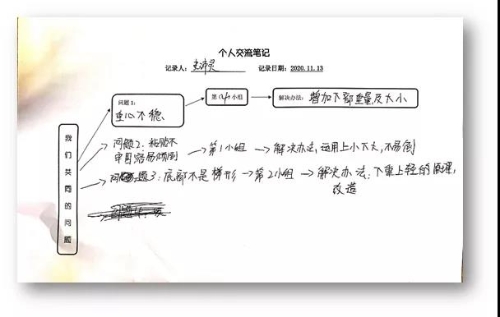 个人交流笔记
记录人： 记录日期：2020.11.13
问题1：
重心不稳、
第 小组
解决办法： 增加下部重量及大小
我们共同的问题
问题2： 不
牢固容易倾倒
第1小组
解决办法，运用上小下大，不易倒
问题3：底部不是梯形
第2小组
解决办法：下重上轻的原理，
改造